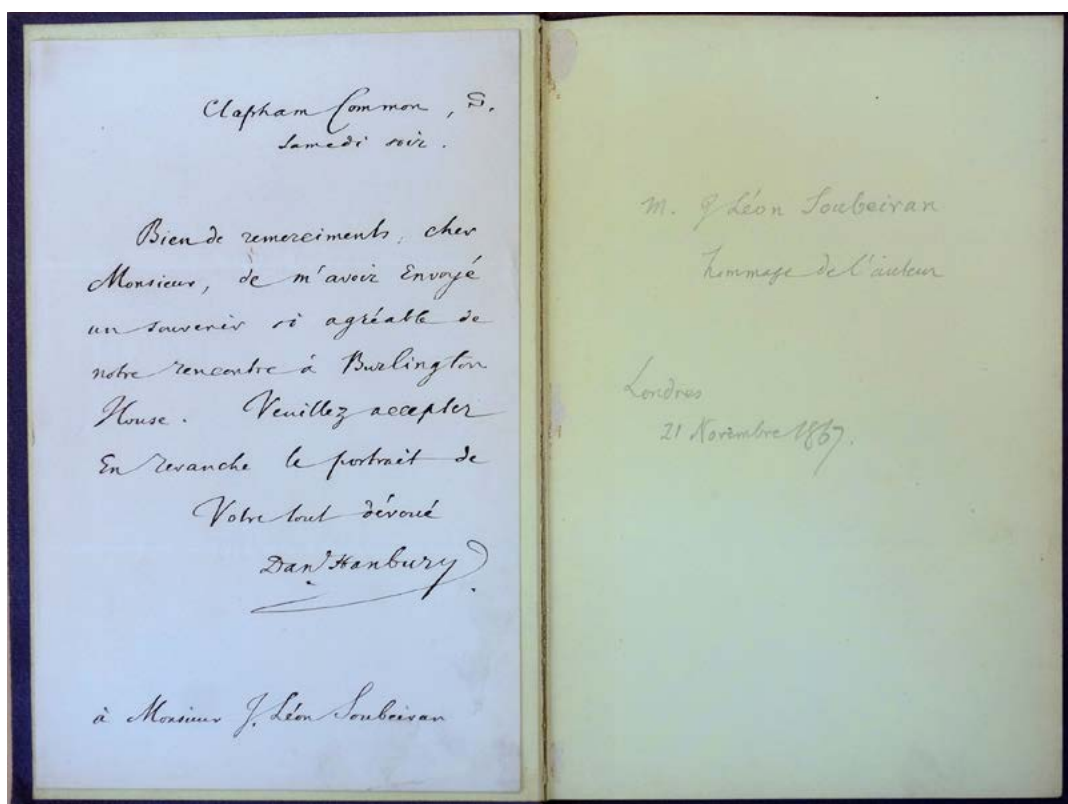 Clapham Common, S.
Samedi soir.
Bien de remerciments, cher
Monsieur, de m'avoir Envoyé
un souvenir si agréable de
notre rencontre à Burlington
House. Veuillez accepter
En revanche le portrait de
Votre tout dévoué
Danl Hanbury
à Monsieur J. Léon Soubeiran
M. J Léon Soubeiran
hommage de l'auteur
Londres
21 Novembre 1867.